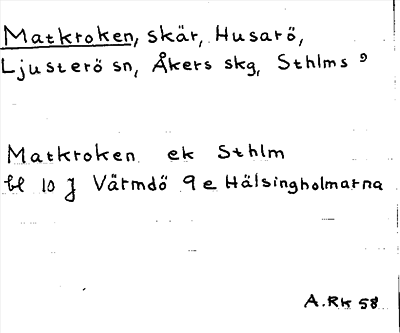 Matkroken, skär, Husarö,
Ljusterö sn, Åkers skg, Sthlms
Matkroken ek Sthlm
bl 10 J Värmdö 9 e Hälsingholmarna
A.Rk 58